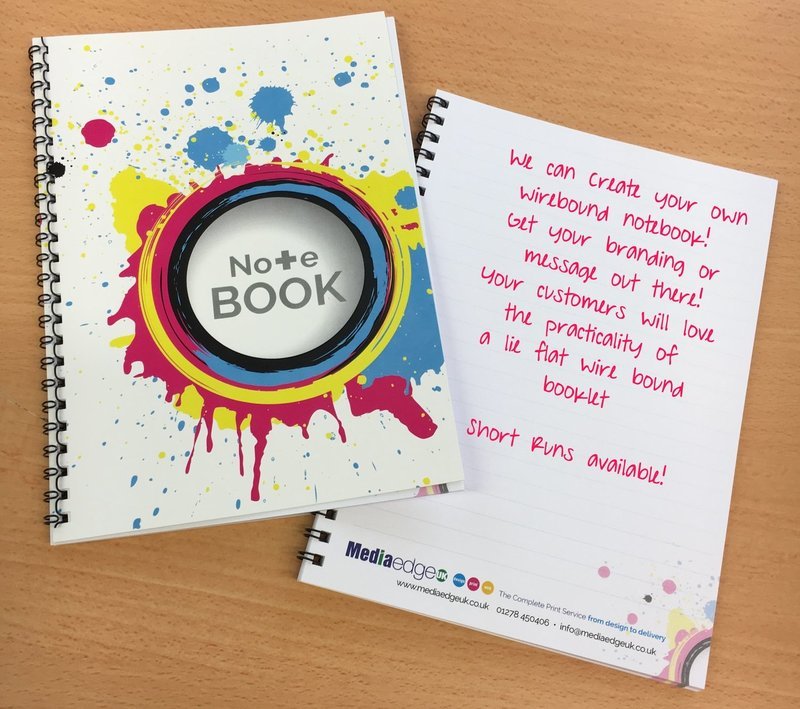 Note
BOOK
We can create your own
wirebound notebook!
Get your branding or
message out there!
Your customers will love
the practicality of
a lie flat wire bound
booklet
Short Runs available!
Mediaedge UK
The Complete Print Service from design to delivery
www.mediaedgeuk.co.uk 01278 450406 • info@mediaedgeuk.co.uk